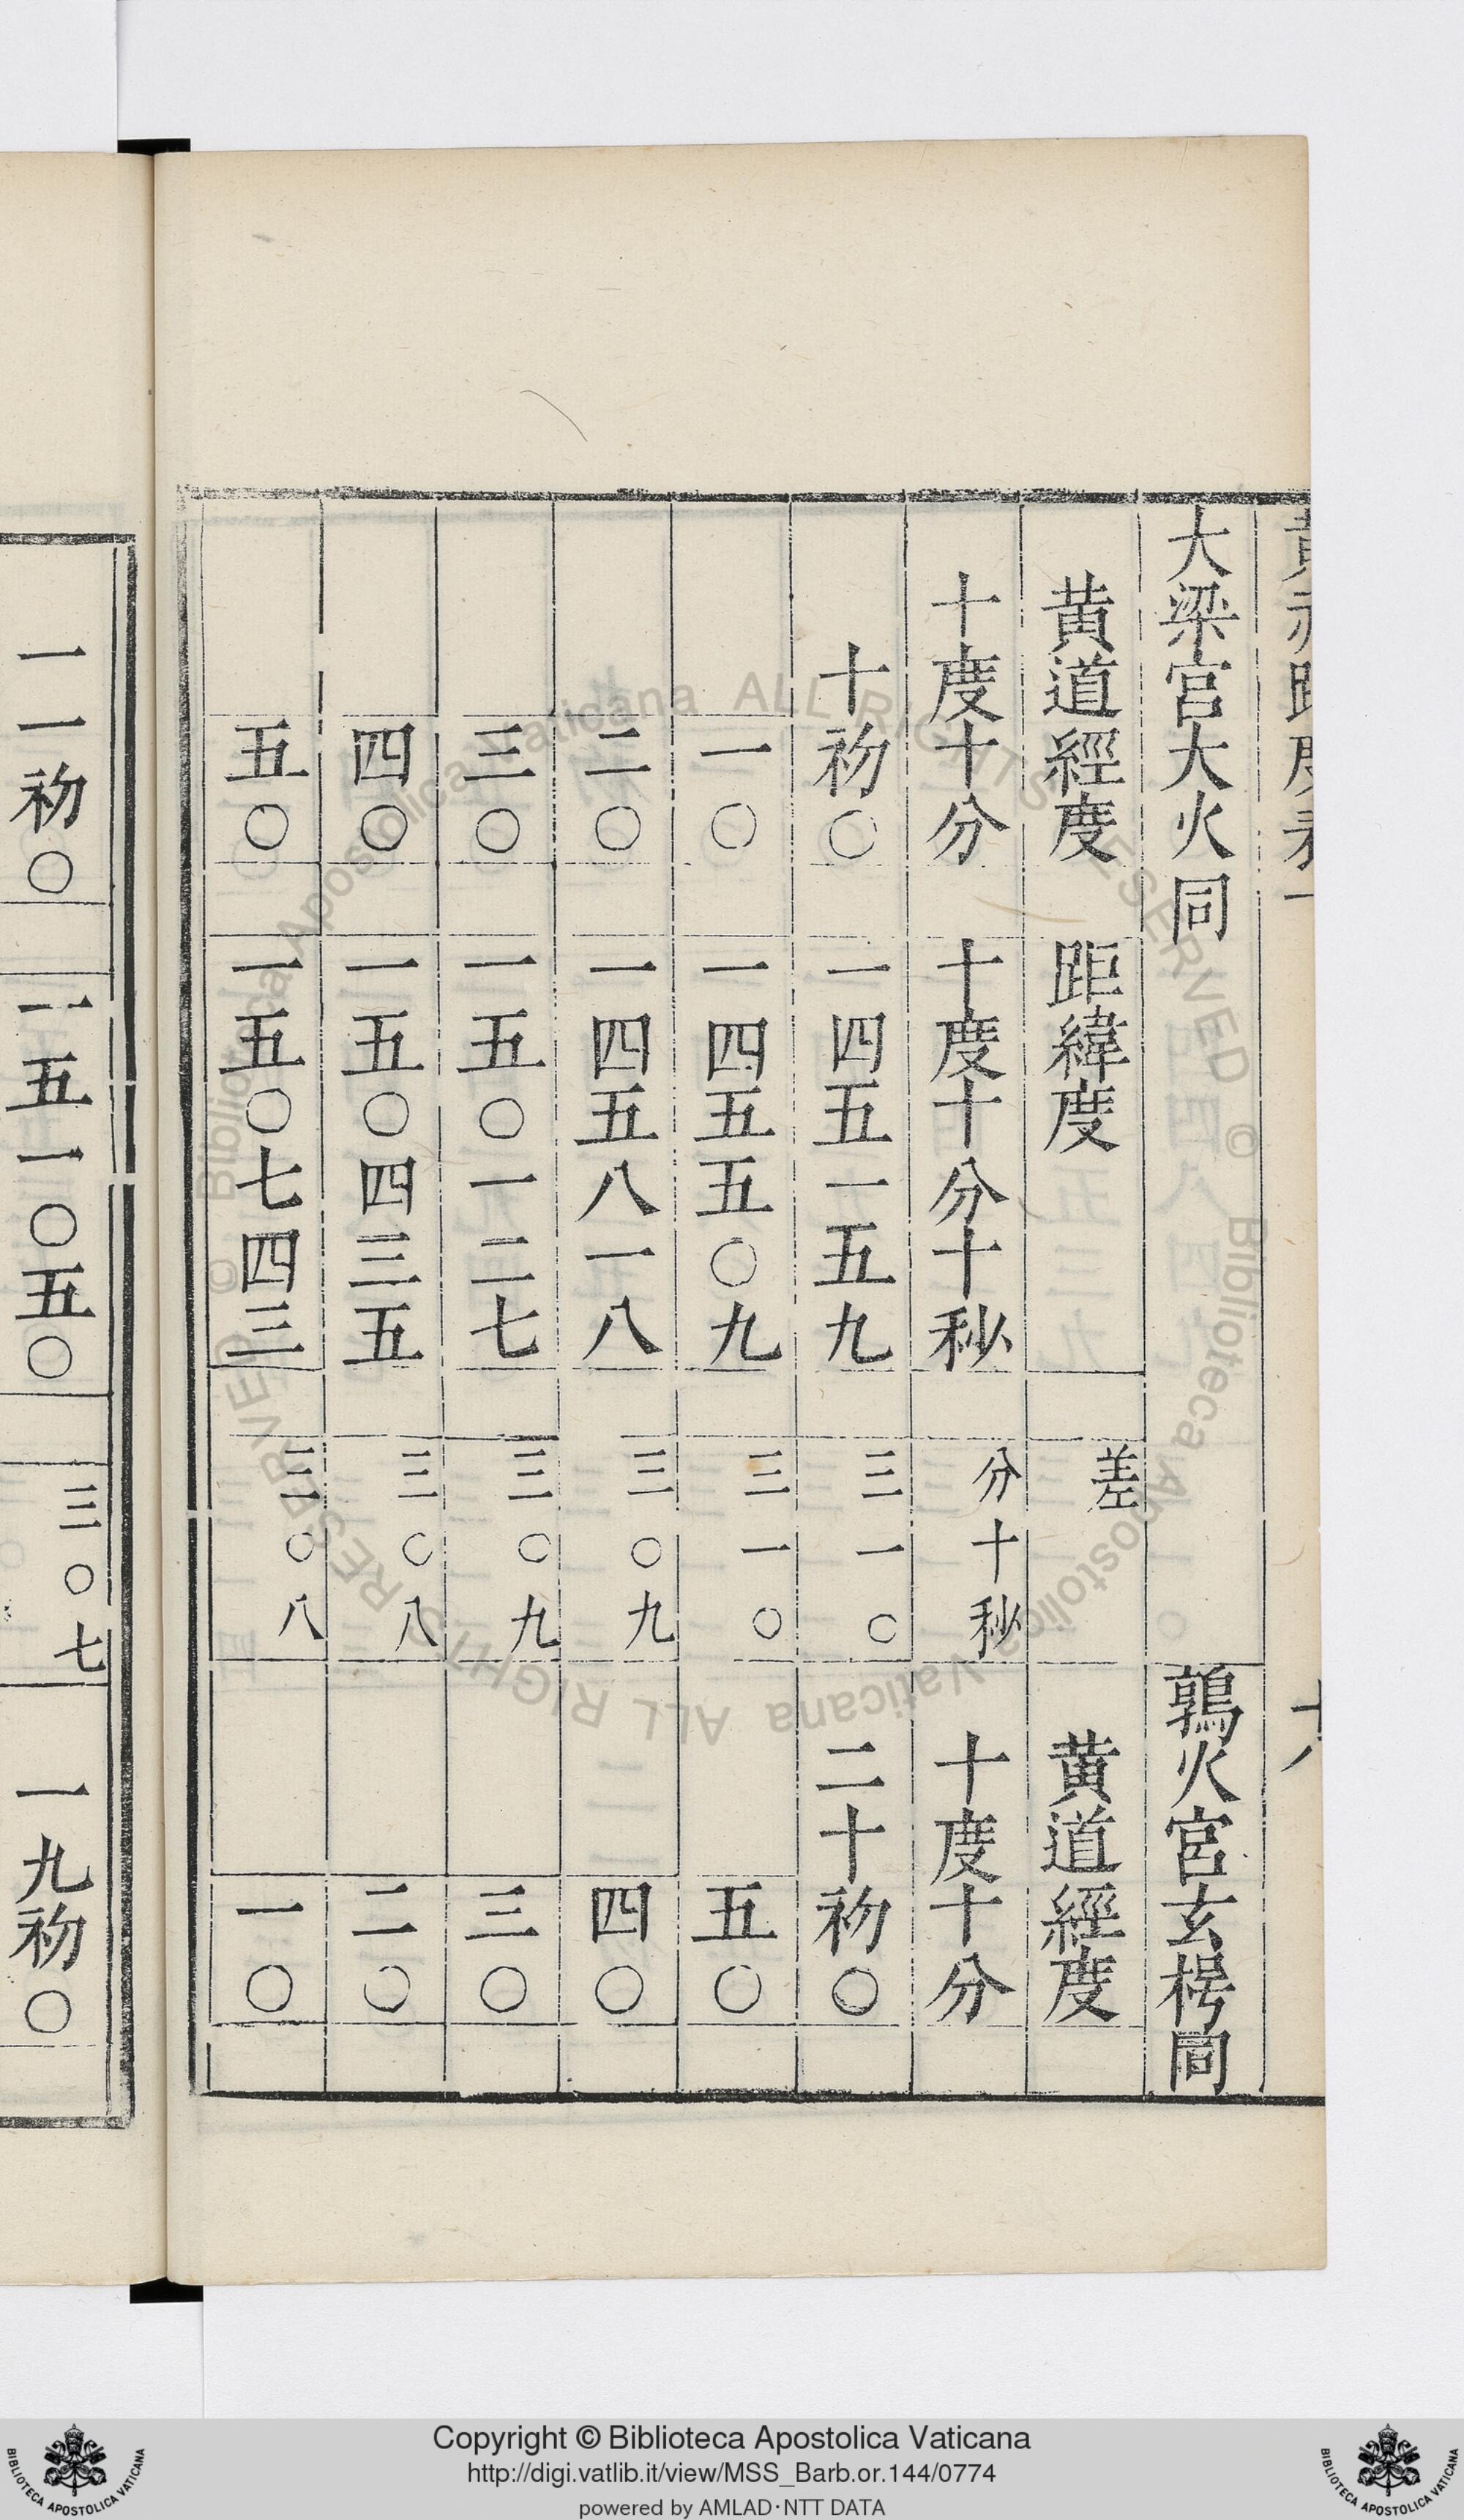 黄赤距度表一 十八
大梁宫大火同 鶉火宫玄枵同
黄道經度 距緯度 差 黄道經度
十度十分 十度十分十秒 分十秒 十度十分
十初○ 一四五一五九 三一○ 二十初○
一○ 一四五五○九 三一○ 五○
二○ 一四五八一八 三○九 四○
三○ 一五○一二七 三○九 三○
四○ 一五○四三五 三○八 二○
五○ 一五○七四三 三○八 一○
一一初○ 一五一○五○ 三○七 一九初○
© Biblioteca Apostolica Vaticana ALL RIGHTS RESERVED © Biblioteca Apostolica Vaticana ALL RIGHTS RESERVED
Copyright © Biblioteca Apostolica Vaticana
http://digi.vatlib.it/view/MSS_Barb.or.144/0774
powered by AMLAD·NTT DATA
BIBLIOTECA APOSTOLICA VATICANA
BIBLIOTECA APOSTOLICA VATICANA